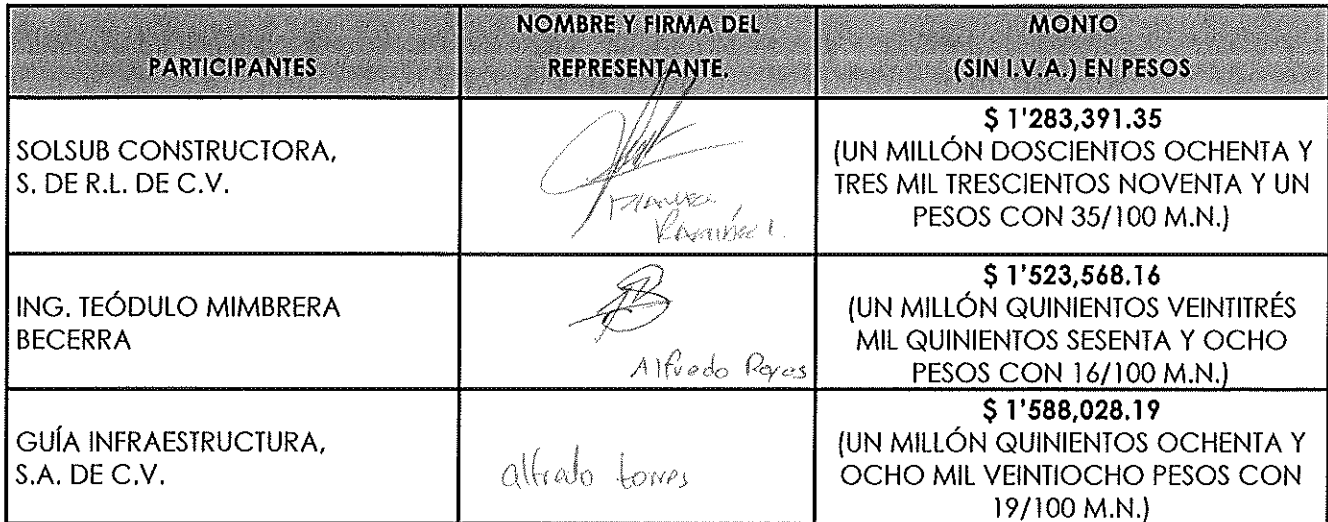 PARTICIPANTES
NOMBRE Y FIRMA DEL
REPRESENTANTE.
MONTO
(SIN I.V.A.) EN PESOS
SOLSUB CONSTRUCTORA,
S. DE R.L. DE C.V.
$ 1'283,391.35
(UN MILLÓN DOSCIENTOS OCHENTA Y
TRES MIL TRESCIENTOS NOVENTA Y UN
PESOS CON 35/100 M.N.)
ING. TEÓDULO MIMBRERA
BECERRA
Alfredo Reyes
$ 1'523,568.16
(UN MILLÓN QUINIENTOS VEINTITRÉS
MIL QUINIENTOS SESENTA Y OCHO
PESOS CON 16/100 M.N.)
GUÍA INFRAESTRUCTURA,
S.A. DE C.V.
alfredo torres
$ 1'588,028.19
(UN MILLÓN QUINIENTOS OCHENTA Y
OCHO MIL VEINTIOCHO PESOS CON
19/100 M.N.)